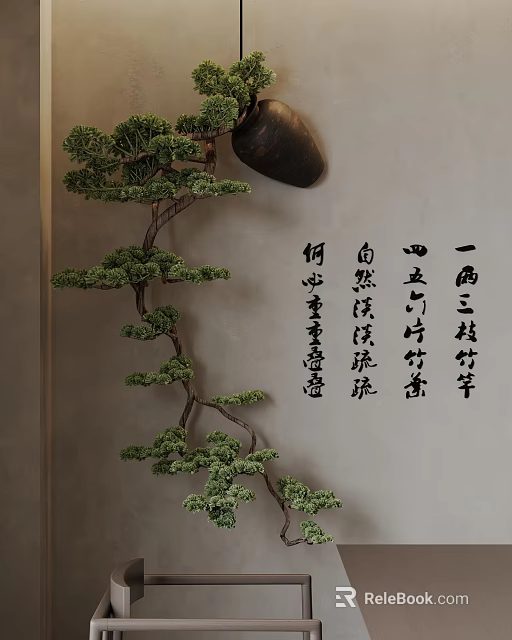 一両三枝竹竿
四五六片竹葉
自然淡淡疏疏
何必重重疊疊
ReleBook.com